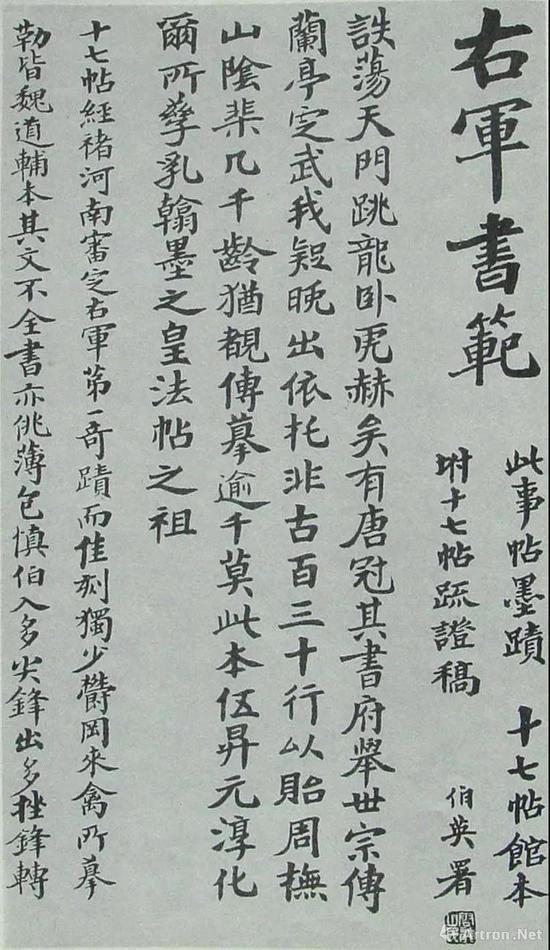 右軍書範
此事帖墨蹟 十七帖館本
坿十七帖疏證稿 伯英署
詄蕩天門跳龍臥虎赫矣有唐冠其書府舉世宗傳
蘭亭定武我疑晚出依托非古百三十行以貽周撫
山陰棐几千齡猶覩傳摹逾千莫此本伍昇元淳化
爾所孳乳翰墨之皇法帖之祖
十七帖經褚河南審定右軍第一奇蹟而佳刻獨少鬱岡來禽所摹
勒皆魏道輔本其文不全書亦佻薄包慎伯入多尖鋒出多挫鋒轉
Artron.Net